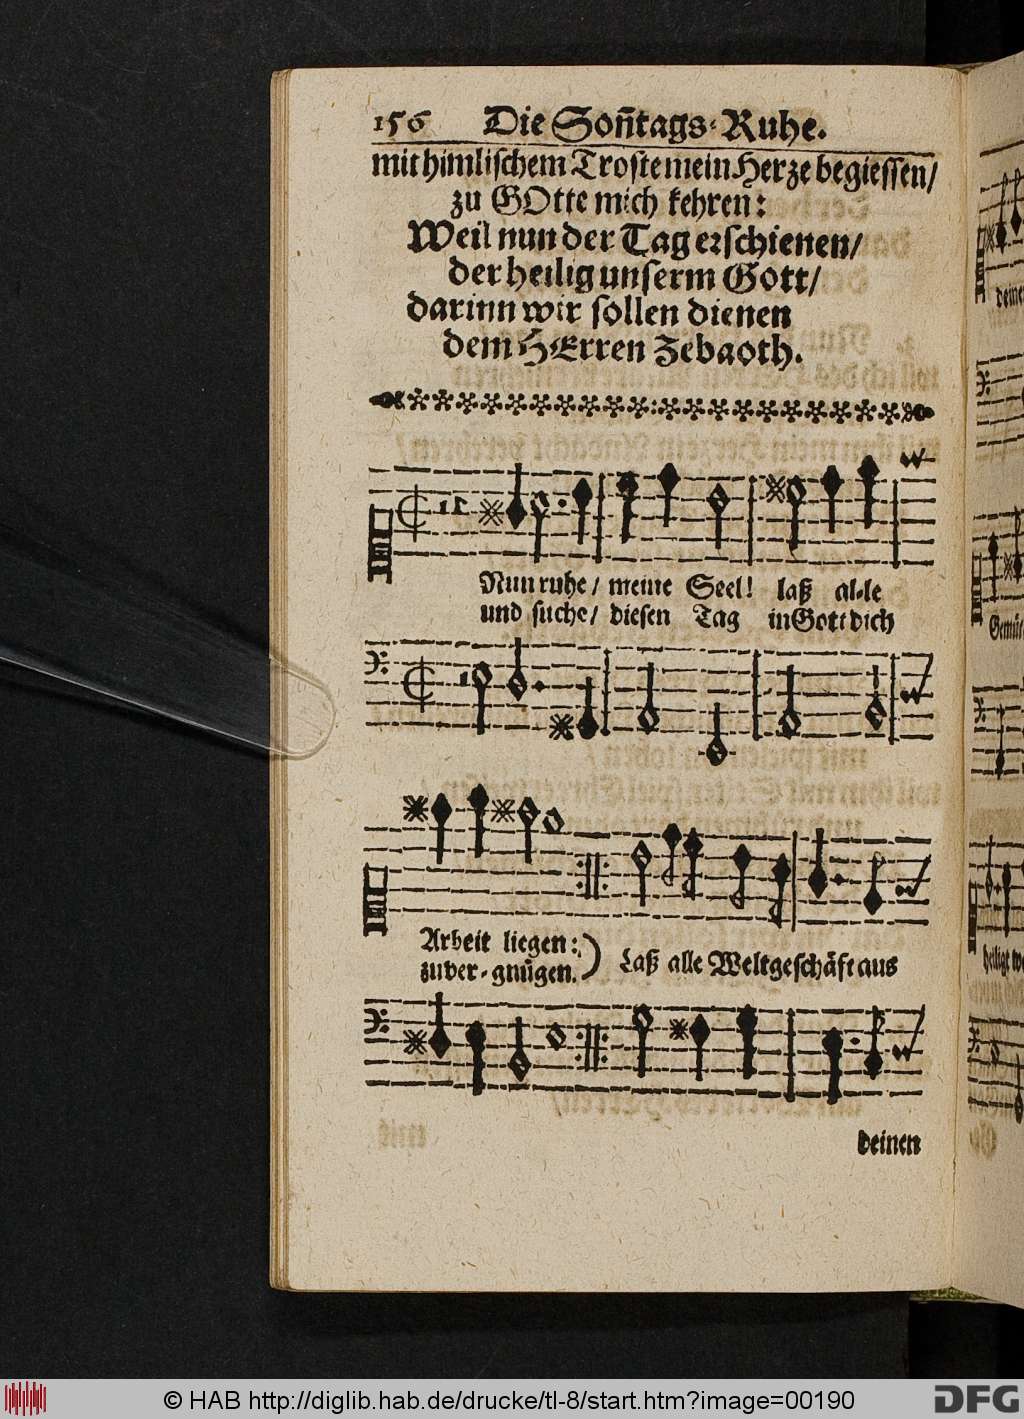 156 Die Soñtags-Ruhe.
mit himlischem Troste mein Herze begiessen/
zu GOtte mich kehren:
Weil nun der Tag erschienen/
der heilig unserm Gott/
darinn wir sollen dienen
dem HErren Zebaoth.
Nun ruhe/ meine Seel! laß al-le
und suche/ diesen Tag in Gott dich
Arbeit liegen:
zuver-gnügen.) Laß alle Weltgeschäft aus
deinen
© HAB http://diglib.hab.de/drucke/tl-8/start.htm?image=00190
DFG